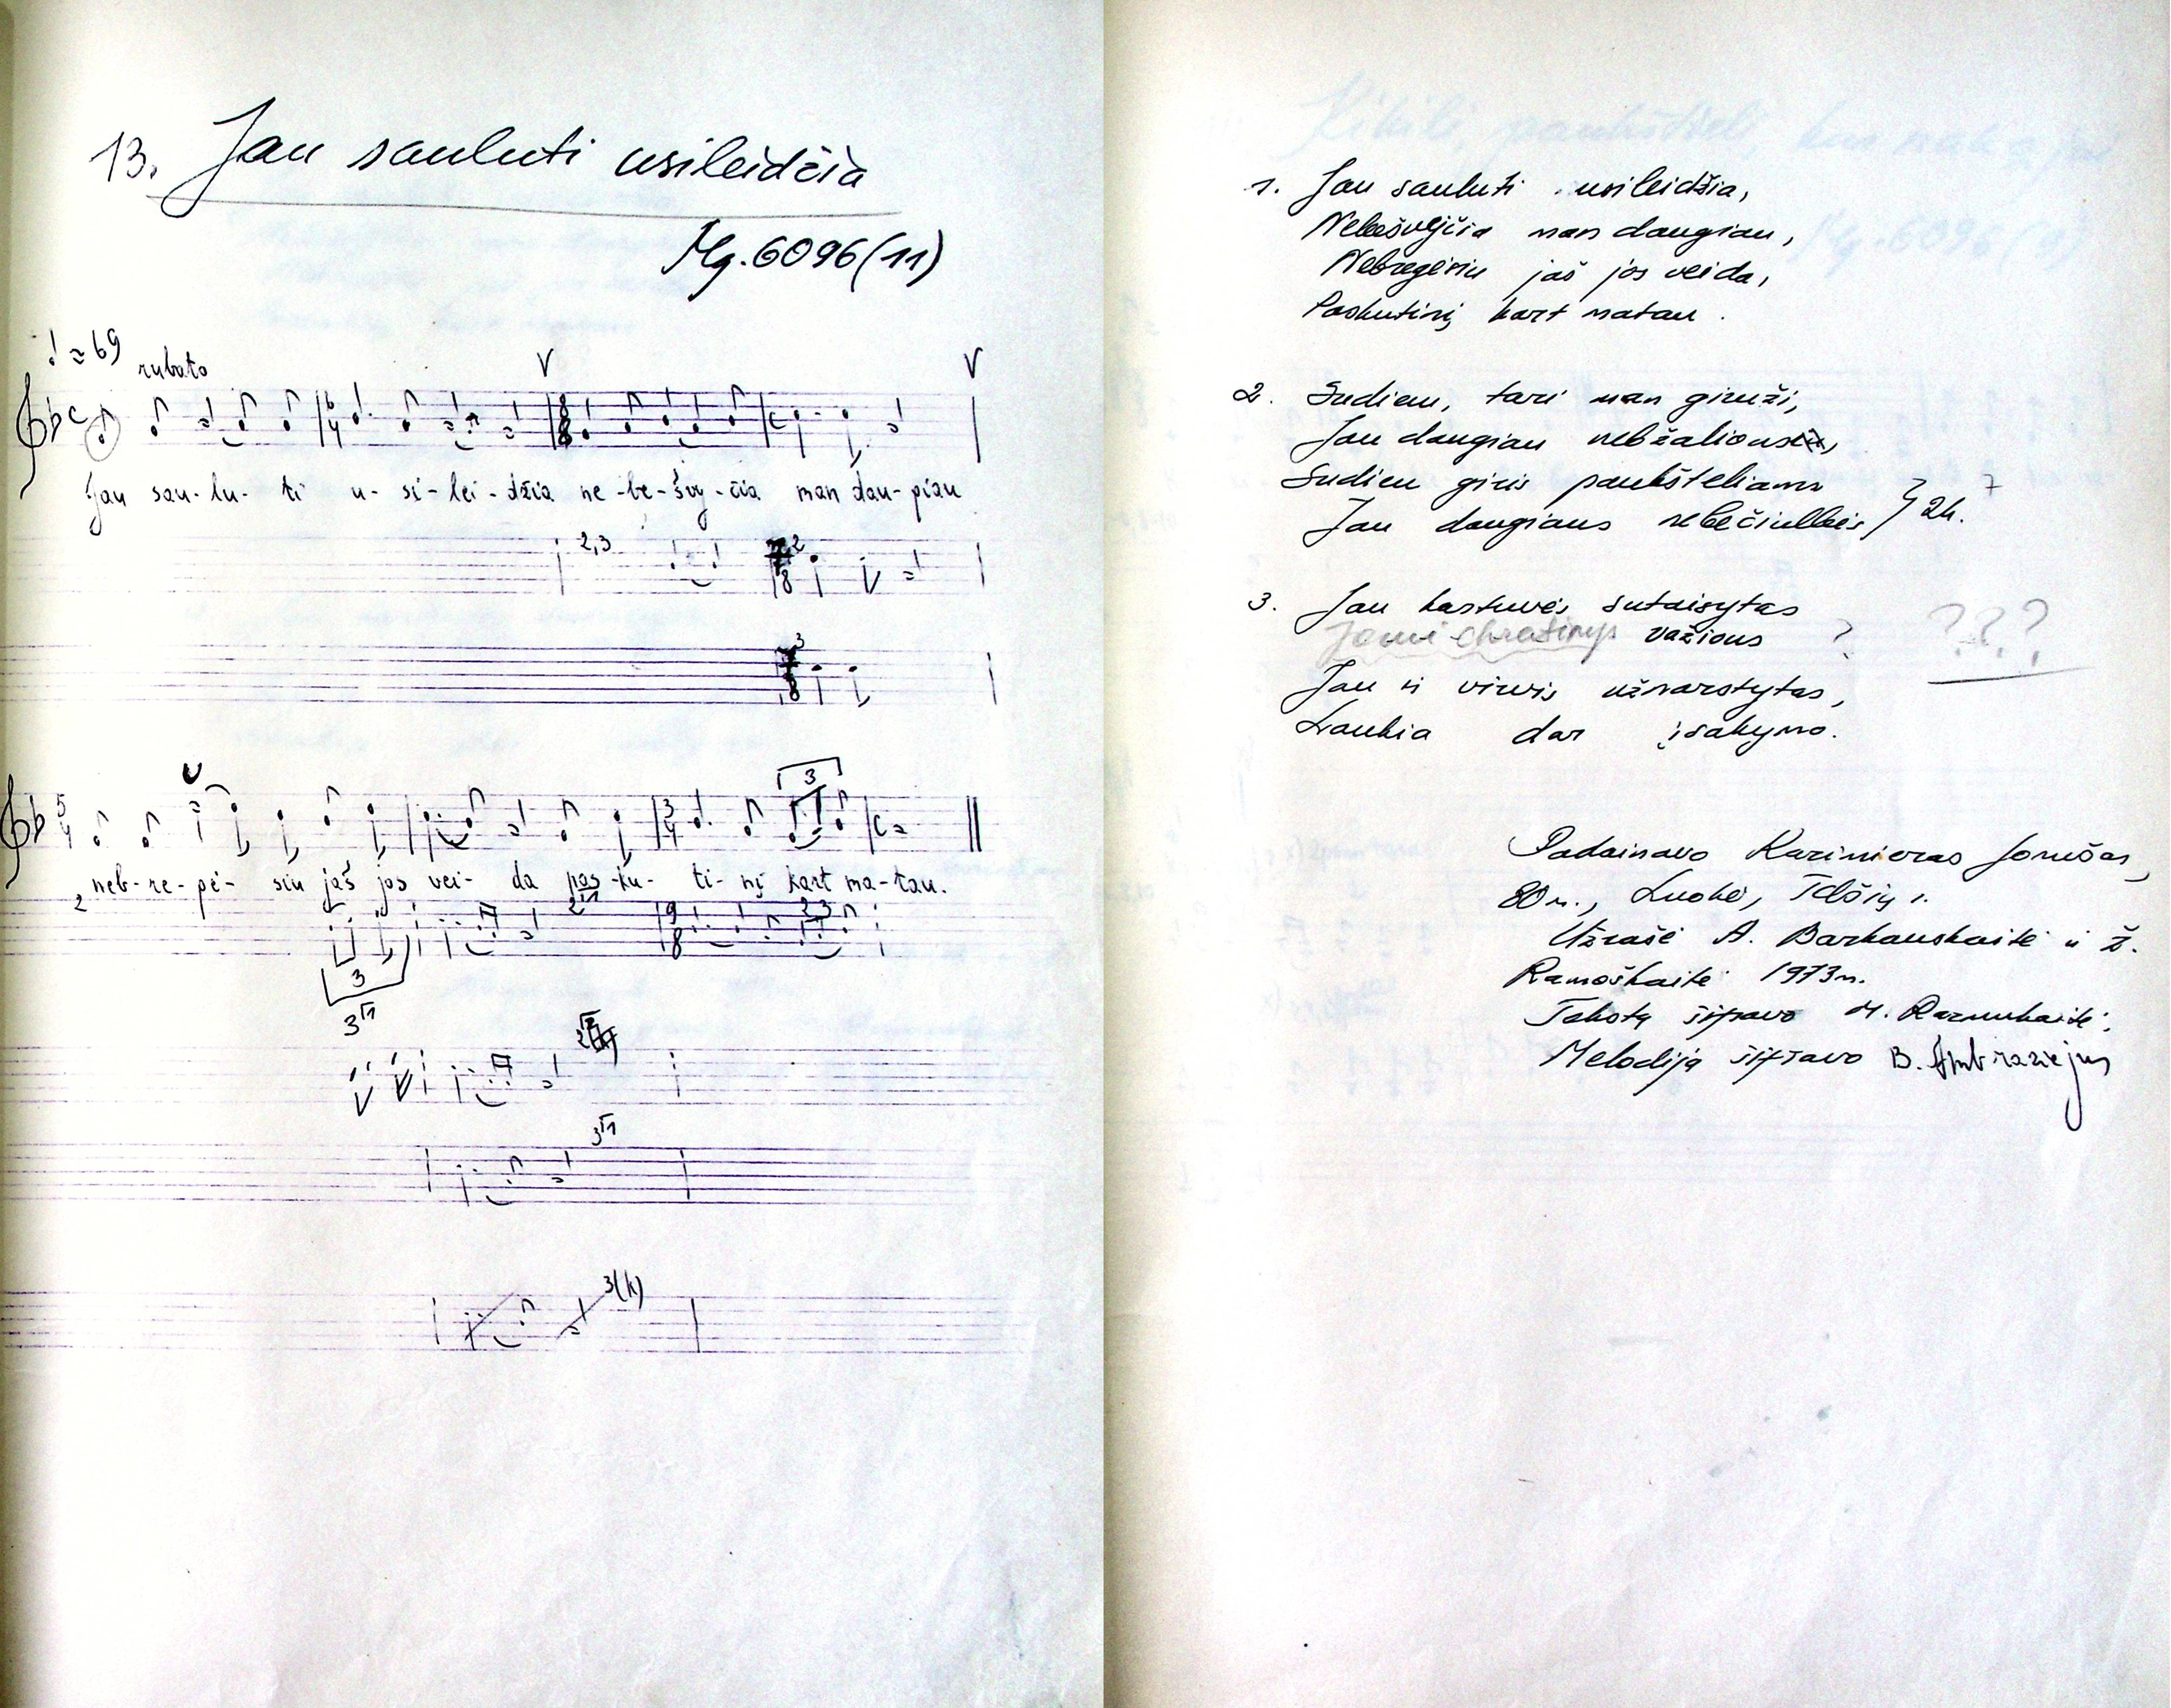 13. Jau sauluti usileidžia
Mg. 6096 (11)
♩ ≈ 69 rubato
Jau sau-lu-ti u-si-lei-džia ne-be-švy-čia man dau-giau
2,3
2
3
neb-re-gė-siu jaš jos vei-da pas-ku-ti-nį kart ma-tau.
3
3(k)
1. Jau sauluti usileidžia,
Nebešvyčia man daugiau,
Nebregėsiu jaš jos veida,
Paskutinį kart matau.
2. Sudieu, tari man giruži,
Jau daugiau nebžalious,
Sudieu giris paukšteliams
Jau daugiaus nebečiulbės } 2k.
3. Jau kartuvės sutaisytas
važious ? ???
Jau ir virvis užnarstytas,
Laukia dar įsakymo.
Padainavo Kazimieras Jonušas,
80 m., Luokė, Telšių r.
Užrašė A. Barkauskaitė ir Ž.
Ramoškaitė 1973 m.
Tekstą šifravo M. Razmukaitė,
Melodiją šifravo B. Ambraziejus